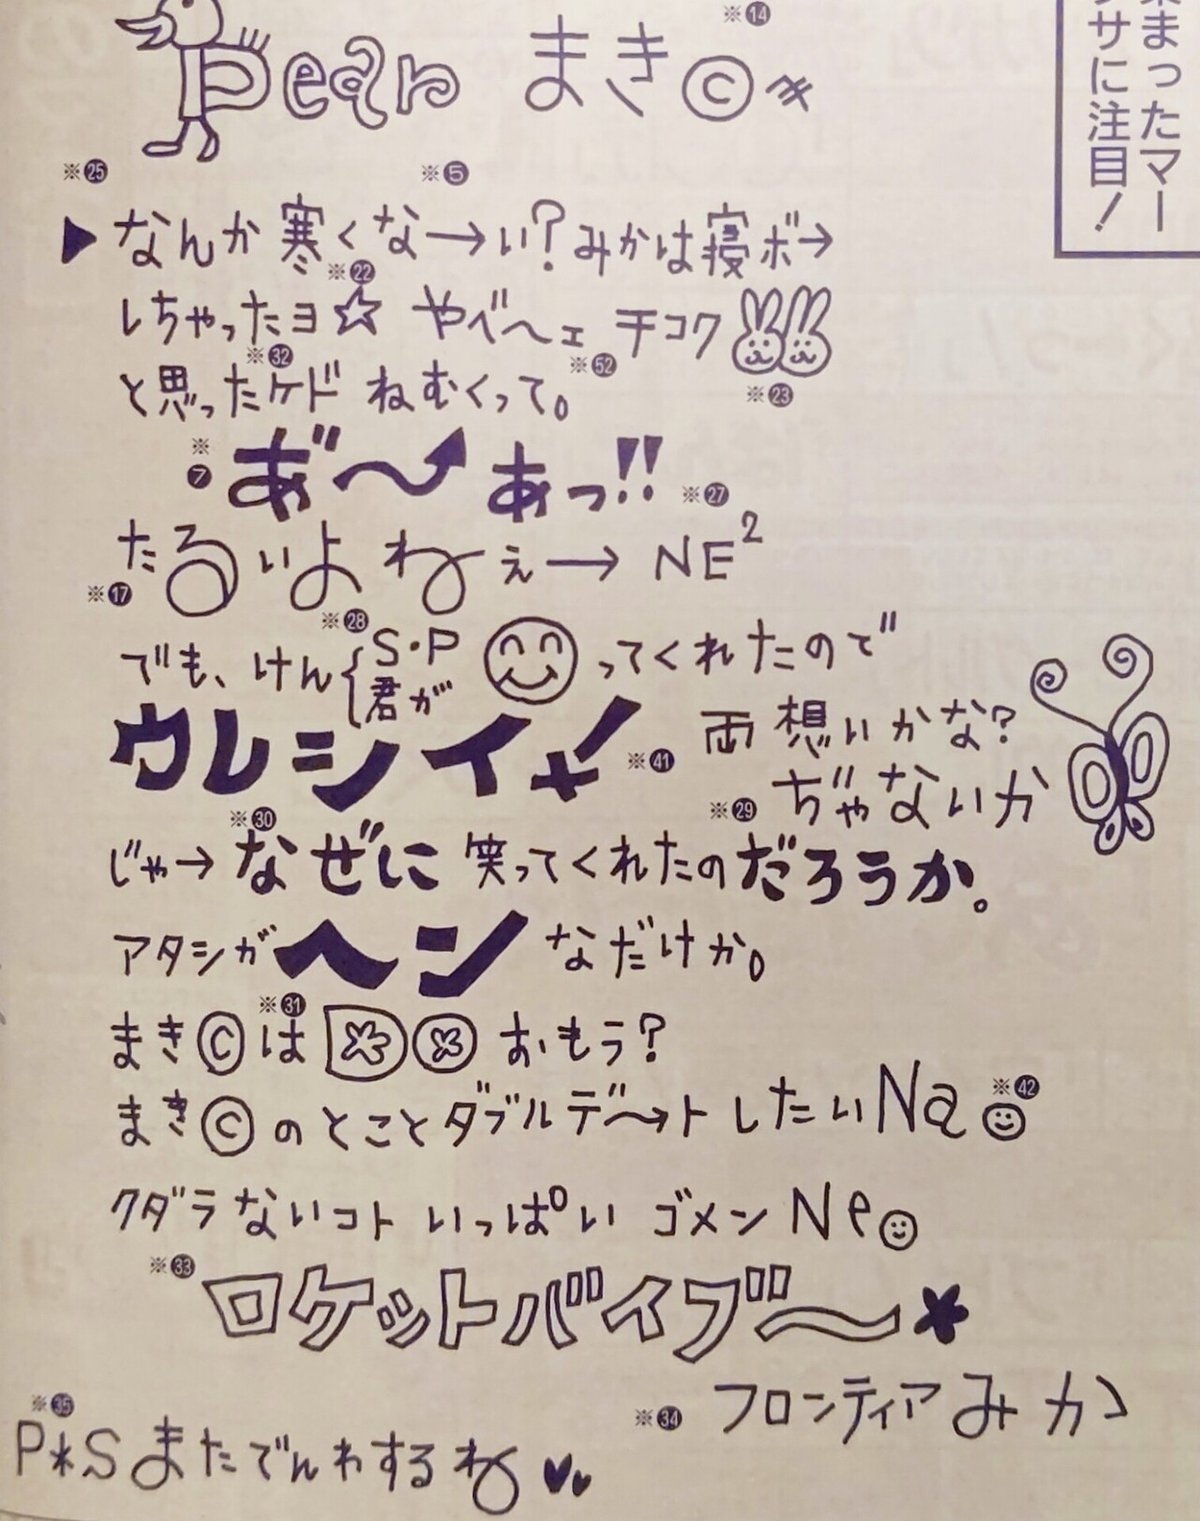 ※⑭
pear まき©
まったマー
サに注目!
※㉕ ※⑤
▶なんか寒くな→い?みかは寝ボ→
※㉒
しちゃったヨ☆ やべ〜ェ チコク
※㉜ ※52 ※㉓
と思ったケド ねむくって。
※⑦ あ゛〜あっ!! ※㉗
たるいよねぇ→ NE²
※⑰ ※㉘
でも、けん{S・P 君が ってくれたので
ウレシイ! ※㊶ 両想いかな?
※㉙ ぢゃないか
※㉚
じゃ→なぜに笑ってくれたのだろうか。
アタシがヘンなだけか。
※㉛
まき©は おもう?
※㊷
まき©のとことダブルデ〜トしたいNa
クダラないコトいっぱい ゴメンNe
※㉝ ロケットバイブ〜
※㉞ フロンティアみか
※㉟
P*Sまたでんわするね